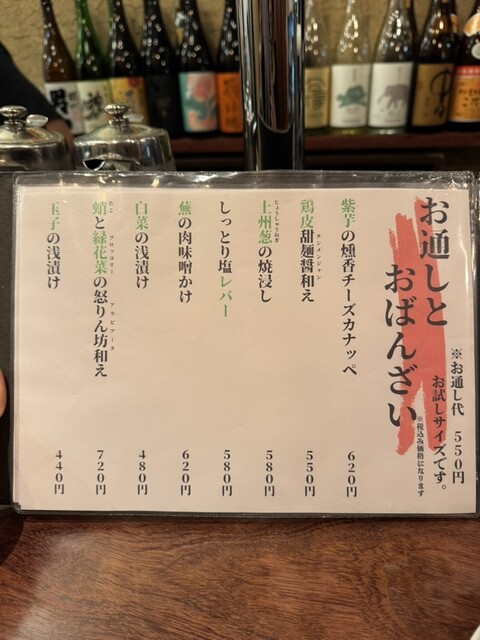 お通しと
おばんざい
※お通し代 550円
お試しサイズです。
※税込み価格になります
紫芋の燻香チーズカナッペ 620円
鶏皮甜麺醤和え 550円
テンメンジャン
上州葱の焼浸し 580円
じょうしゅうねぎ
しっとり塩レバー 580円
蕪の肉味噌かけ 620円
白菜の浅漬け 480円
蛸と緑花菜の怒りん坊和え 720円
たこ ブロッコリー アラビアータ
玉子の浅漬け 440円